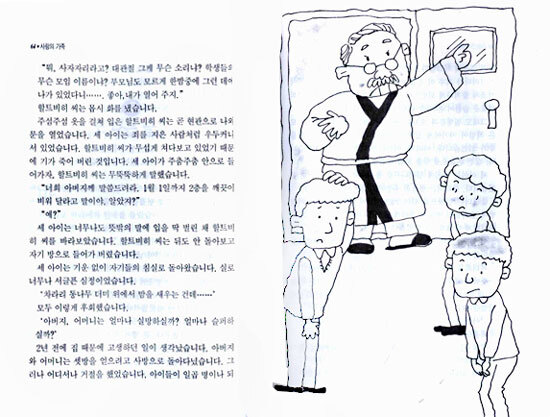 64 • 사랑의 가족
"뭐, 사자자리라고? 대관절 그게 무슨 소리냐? 학생들이
무슨 모임 이름이냐? 부모님도 모르게 한밤중에 그런 데에
나가 있었다니……. 좋아, 내가 열어 주지."
할트비히 씨는 몹시 화를 냈습니다.
주섬주섬 옷을 걸쳐 입은 할트비히 씨는 곧 현관으로 나와
문을 열었습니다. 세 아이는 죄를 지은 사람처럼 우두커니
서 있었습니다. 할트비히 씨가 무섭게 쳐다보고 있었기 때문
에 기가 죽어 버린 것입니다. 세 아이가 주춤주춤 안으로 들
어가자, 할트비히 씨는 무뚝뚝하게 말했습니다.
"너희 아버지께 말씀드려라. 1월 1일까지 2층을 깨끗이
비워 달라고 말이야. 알았지?"
"예?"
세 아이는 너무나도 뜻밖의 말에 입을 딱 벌린 채 할트비
히 씨를 바라보았습니다. 할트비히 씨는 뒤도 안 돌아보고
자기 방으로 들어가 버렸습니다.
세 아이는 기운 없이 자기들의 침실로 돌아왔습니다. 실로
너무나 서글픈 심정이었습니다.
'차라리 통나무 더미 위에서 밤을 새우는 건데……'
모두 이렇게 후회했습니다.
'아버지, 어머니는 얼마나 실망하실까? 얼마나 슬퍼하
실까?'
2년 전에 집 때문에 고생하던 일이 생각났습니다. 아버지
와 어머니는 셋방을 얻으려고 사방으로 돌아다녔습니다. 그
러나 어디서나 거절을 했었습니다. 아이들이 일곱 명이나 되